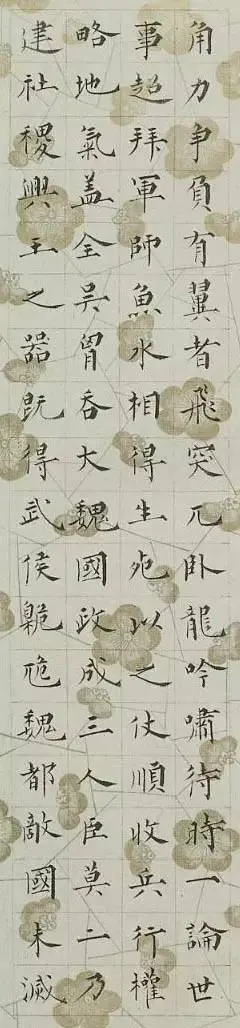 角力争負有翼者飛突兀卧龍吟嘯待時一論世
事超拜軍師魚水相得生死以之仗順收兵行權
略地氣盖全吳胃吞大魏國政成三人臣莫二乃
建社稷興王之器既得武侯臲卼魏都敵國未滅